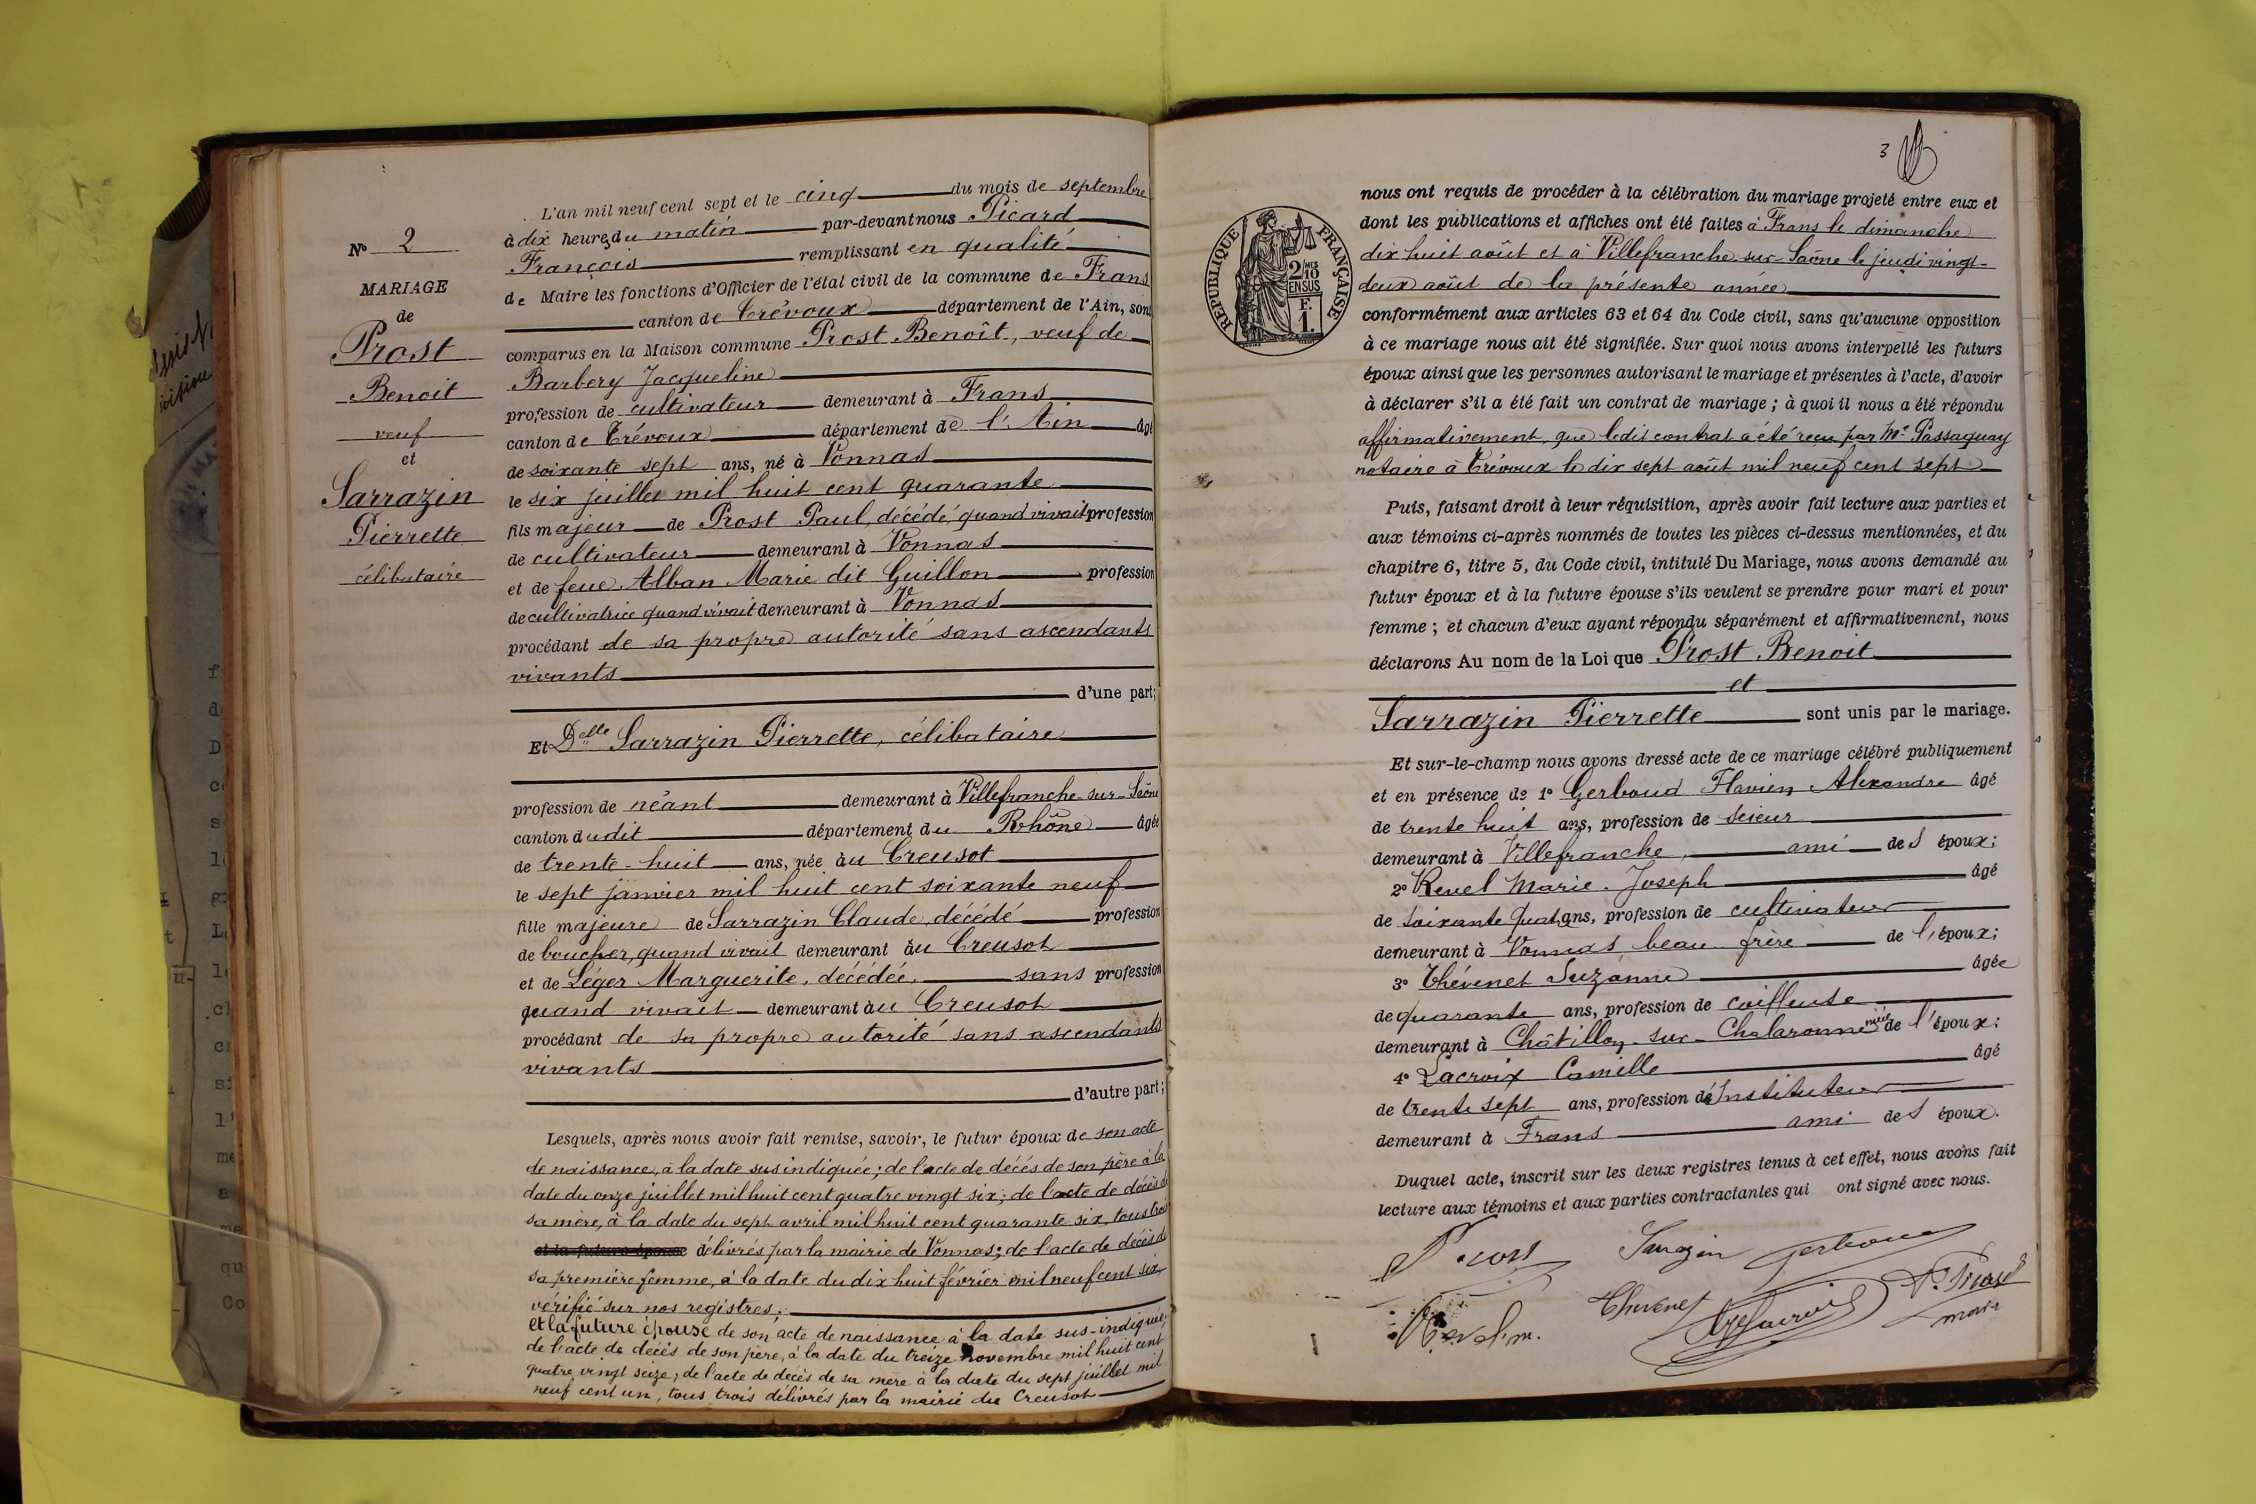 L'an mil neuf cent sept et le cinq du mois de septembre
à dix heures du matin par-devant nous Picard
François remplissant en qualité
de Maire les fonctions d'Officier de l'état civil de la commune de Frans
canton de Trévoux département de l'Ain, sont
comparus en la Maison commune Prost Benoît, veuf de
Barbery Jacqueline
profession de cultivateur demeurant à Frans
canton de Trévoux département de l'Ain âgé
de soixante sept ans, né à Vonnas
le six juillet mil huit cent quarante
fils majeur de Prost Paul, décédé, quand vivait profession
de cultivateur demeurant à Vonnas
et de feue Alban Marie dit Guillon profession
de cultivatrice quand vivait demeurant à Vonnas
procédant de sa propre autorité sans ascendants
vivants
d'une part;
Et Delle Sarrazin Pierrette, célibataire
profession de néant demeurant à Villefranche-sur-Saône
canton dudit département du Rhône âgée
de trente-huit ans, née au Creusot
le sept janvier mil huit cent soixante neuf
fille majeure de Sarrazin Claude, décédé profession
de boucher, quand vivait demeurant au Creusot
et de Léger Marguerite, décédée, sans profession
quand vivait demeurant au Creusot
procédant de sa propre autorité sans ascendants
vivants
d'autre part;
Lesquels, après nous avoir fait remise, savoir, le futur époux de son acte
de naissance, à la date sus indiquée; de l'acte de décès de son père à la
date du onze juillet mil huit cent quatre vingt six; de l'acte de décès de
sa mère, à la date du sept avril mil huit cent quarante six, tous trois
et la future épouse délivrés par la mairie de Vonnas; de l'acte de décès de
sa première femme, à la date du dix huit février mil neuf cent six,
vérifié sur nos registres;
et la future épouse de son acte de naissance à la date sus-indiquée;
de l'acte de décès de son père, à la date du treize novembre mil huit cent
quatre vingt seize; de l'acte de décès de sa mère à la date du sept juillet mil
neuf cent un, tous trois délivrés par la mairie du Creusot
No 2
MARIAGE
de
Prost
Benoit
veuf
et
Sarrazin
Pierrette
célibataire
3
RÉPUBLIQUE FRANÇAISE
2/10 MES
EN SUS
F.
1.
nous ont requis de procéder à la célébration du mariage projeté entre eux et
dont les publications et affiches ont été faites à Frans le dimanche
dix huit août et à Villefranche sur Saône le jeudi vingt-
deux août de la présente année
conformément aux articles 63 et 64 du Code civil, sans qu'aucune opposition
à ce mariage nous ait été signifiée. Sur quoi nous avons interpellé les futurs
époux ainsi que les personnes autorisant le mariage et présentes à l'acte, d'avoir
à déclarer s'il a été fait un contrat de mariage; à quoi il nous a été répondu
affirmativement, que ledit contrat a été reçu par Me Passaquay
notaire à Trévoux le dix sept août mil neuf cent sept
Puis, faisant droit à leur réquisition, après avoir fait lecture aux parties et
aux témoins ci-après nommés de toutes les pièces ci-dessus mentionnées, et du
chapitre 6, titre 5, du Code civil, intitulé Du Mariage, nous avons demandé au
futur époux et à la future épouse s'ils veulent se prendre pour mari et pour
femme; et chacun d'eux ayant répondu séparément et affirmativement, nous
déclarons Au nom de la Loi que Prost Benoit
et
Sarrazin Pierrette sont unis par le mariage.
Et sur-le-champ nous avons dressé acte de ce mariage célébré publiquement
et en présence de 1° Gerboud Flavien Alexandre âgé
de trente huit ans, profession de scieur
demeurant à Villefranche, ami des époux;
2° Revel Marie-Joseph âgé
de soixante quatre ans, profession de cultivateur
demeurant à Vonnas beau frère de l'époux;
3° Thévenet Suzanne âgée
de quarante ans, profession de coiffeuse
demeurant à Châtillon-sur-Chalaronne nièce de l'époux;
4° Lacroix Camille âgé
de trente sept ans, profession d'Instituteur
demeurant à Frans ami des époux.
Duquel acte, inscrit sur les deux registres tenus à cet effet, nous avons fait
lecture aux témoins et aux parties contractantes qui ont signé avec nous.
Sarrazin
Thevenet
Revel m.
F. Picard
maire